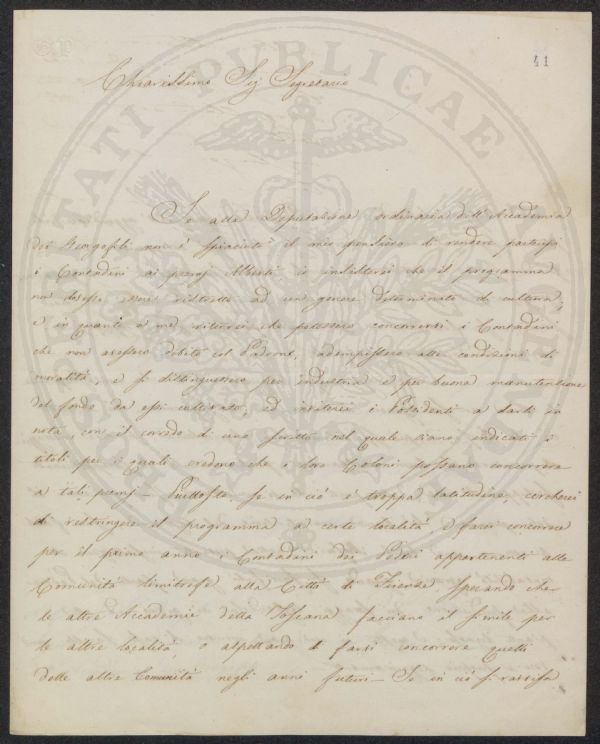 41
Chiarissimo Sig. Segretario
Se alla Deputazione ordinaria dell'Accademia
dei Georgofili non è spiaciuto il mio pensiero di rendere partecipi
i Contadini ai premj Alberti io insisterei che il programma
non dovesse essere ristretto ad un genere determinato di cultura,
e in quanto a me riterrei che potessero concorrervi i Contadini
che non avessero debito col Padrone, adempissero alle condizioni di
moralità, e si distinguessero per industria e per buona manutenzione
del fondo da essi coltivato, ed inviterei i Possidenti a darli in
nota, con il corredo di uno scritto nel quale siano indicati i
titoli per i quali credono che i loro Coloni possano concorrere
a tali premj – Piuttosto, se in ciò è troppa latitudine, cercherei
di restringere il programma a certe località, e farei concorrere
per il primo anno i Contadini dei Poderi appartenenti alle
Comunità limitrofe alla Città di Firenze sperando che
le altre Accademie della Toscana facciano il simile per
le altre località, o aspettando di farvi concorrere quelli
delle altre Comunità negli anni futuri – Se in ciò si ravvisa
PUBLICAE